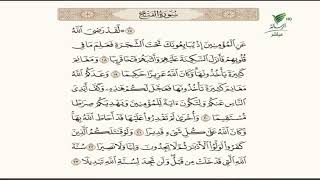 سُورَةُ الفَتْحِ
لَّقَدْ رَضِيَ اللَّهُ
عَنِ الْمُؤْمِنِينَ إِذْ يُبَايِعُونَكَ تَحْتَ الشَّجَرَةِ فَعَلِمَ مَا فِي
قُلُوبِهِمْ فَأَنزَلَ السَّكِينَةَ عَلَيْهِمْ وَأَثَابَهُمْ فَتْحًا قَرِيبًا ۝ وَمَغَانِمَ
كَثِيرَةً يَأْخُذُونَهَا وَكَانَ اللَّهُ عَزِيزًا حَكِيمًا ۝ وَعَدَكُمُ اللَّهُ
مَغَانِمَ كَثِيرَةً تَأْخُذُونَهَا فَعَجَّلَ لَكُمْ هَٰذِهِ وَكَفَّ أَيْدِيَ
النَّاسِ عَنكُمْ وَلِتَكُونَ آيَةً لِّلْمُؤْمِنِينَ وَيَهْدِيَكُمْ صِرَاطًا
مُّسْتَقِيمًا ۝ وَأُخْرَىٰ لَمْ تَقْدِرُوا عَلَيْهَا قَدْ أَحَاطَ اللَّهُ بِهَا
وَكَانَ اللَّهُ عَلَىٰ كُلِّ شَيْءٍ قَدِيرًا ۝ وَلَوْ قَاتَلَكُمُ الَّذِينَ
كَفَرُوا لَوَلَّوُا الْأَدْبَارَ ثُمَّ لَا يَجِدُونَ وَلِيًّا وَلَا نَصِيرًا ۝ سُنَّةَ
اللَّهِ الَّتِي قَدْ خَلَتْ مِن قَبْلُ وَلَن تَجِدَ لِسُنَّةِ اللَّهِ تَبْدِيلًا ۝
HD
مباشر